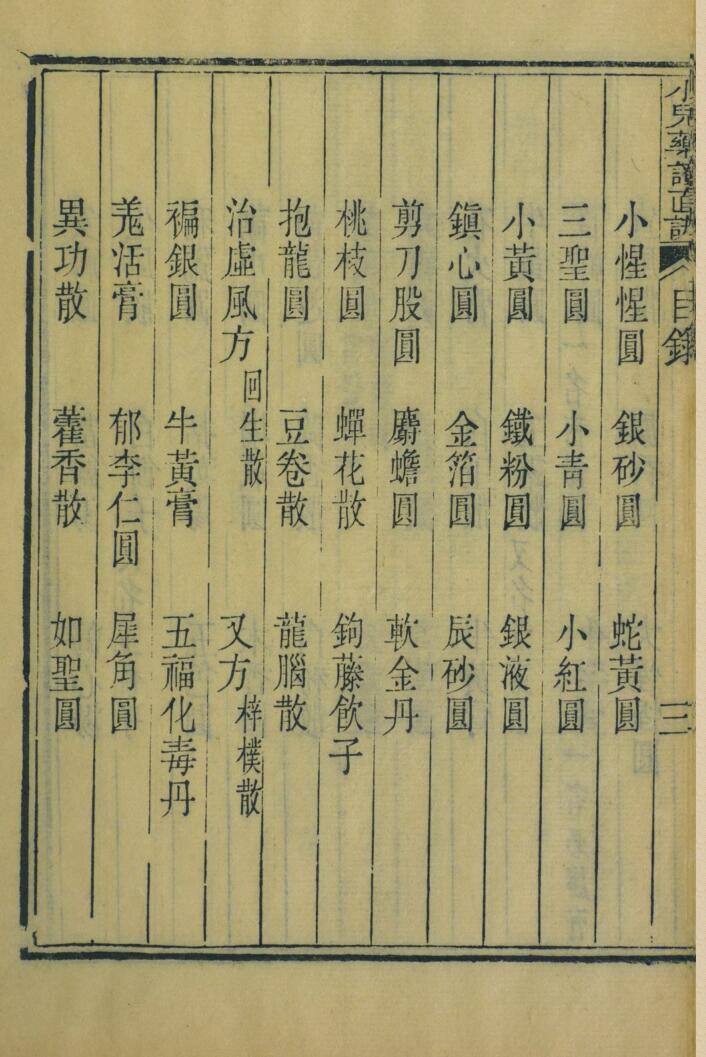 小兒藥證直訣 目錄 三
小惺惺圓 銀砂圓 蛇黃圓
三聖圓 小青圓 小紅圓
小黃圓 鐵粉圓 銀液圓
鎮心圓 金箔圓 辰砂圓
剪刀股圓 麝蟾圓 軟金丹
桃枝圓 蟬花散 鉤藤飲子
抱龍圓 豆卷散 龍腦散
治虛風方 回生散 又方 梓樸散
褊銀圓 牛黃膏 五福化毒丹
羗活膏 郁李仁圓 犀角圓
異功散 藿香散 如聖圓